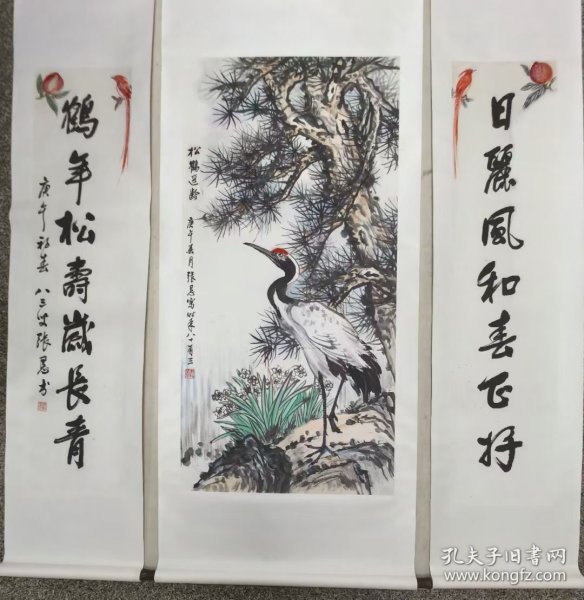 日麗風和春正好
松鶴遐齡
庚午春月張寫時年八十有三
鶴年松壽歲長青
庚午初春八三叟張書
孔夫子旧书网
www.kongfz.com